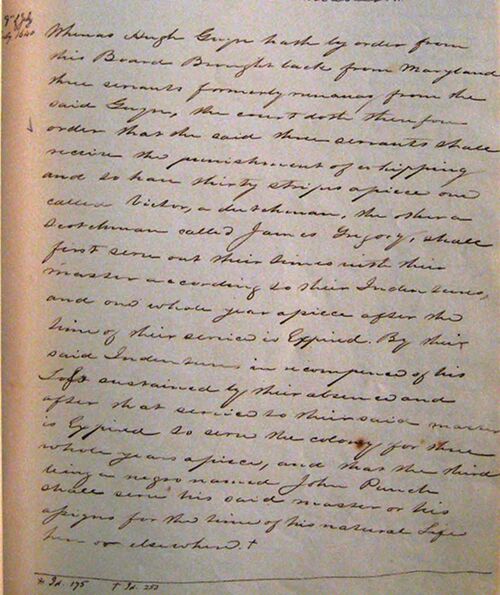 9th July
July 1640
Whereas Hugh Gwyn hath by order from
this Board Brought back from Maryland
three servants formerly runaway from the
said Gwyn, the court doth therefore
order that the said three servants shall
receive the punishment of whipping
and to have thirty stripes apiece one
called Victor, a dutchman, the other a
Scotchman called James Gregory, shall
first serve out their times with their
master according to their Indentures,
and one whole year apiece after the
time of their service is Expired. By their
said Indentures in recompence of his
Loss sustained by their absence and
after that service to their said master
is Expired to serve the colony for three
whole years apiece, and that the third
being a negro named John Punch
shall serve his said master or his
assigns for the time of his natural Life
here or elsewhere.†
* Id. 175 † Id. 253